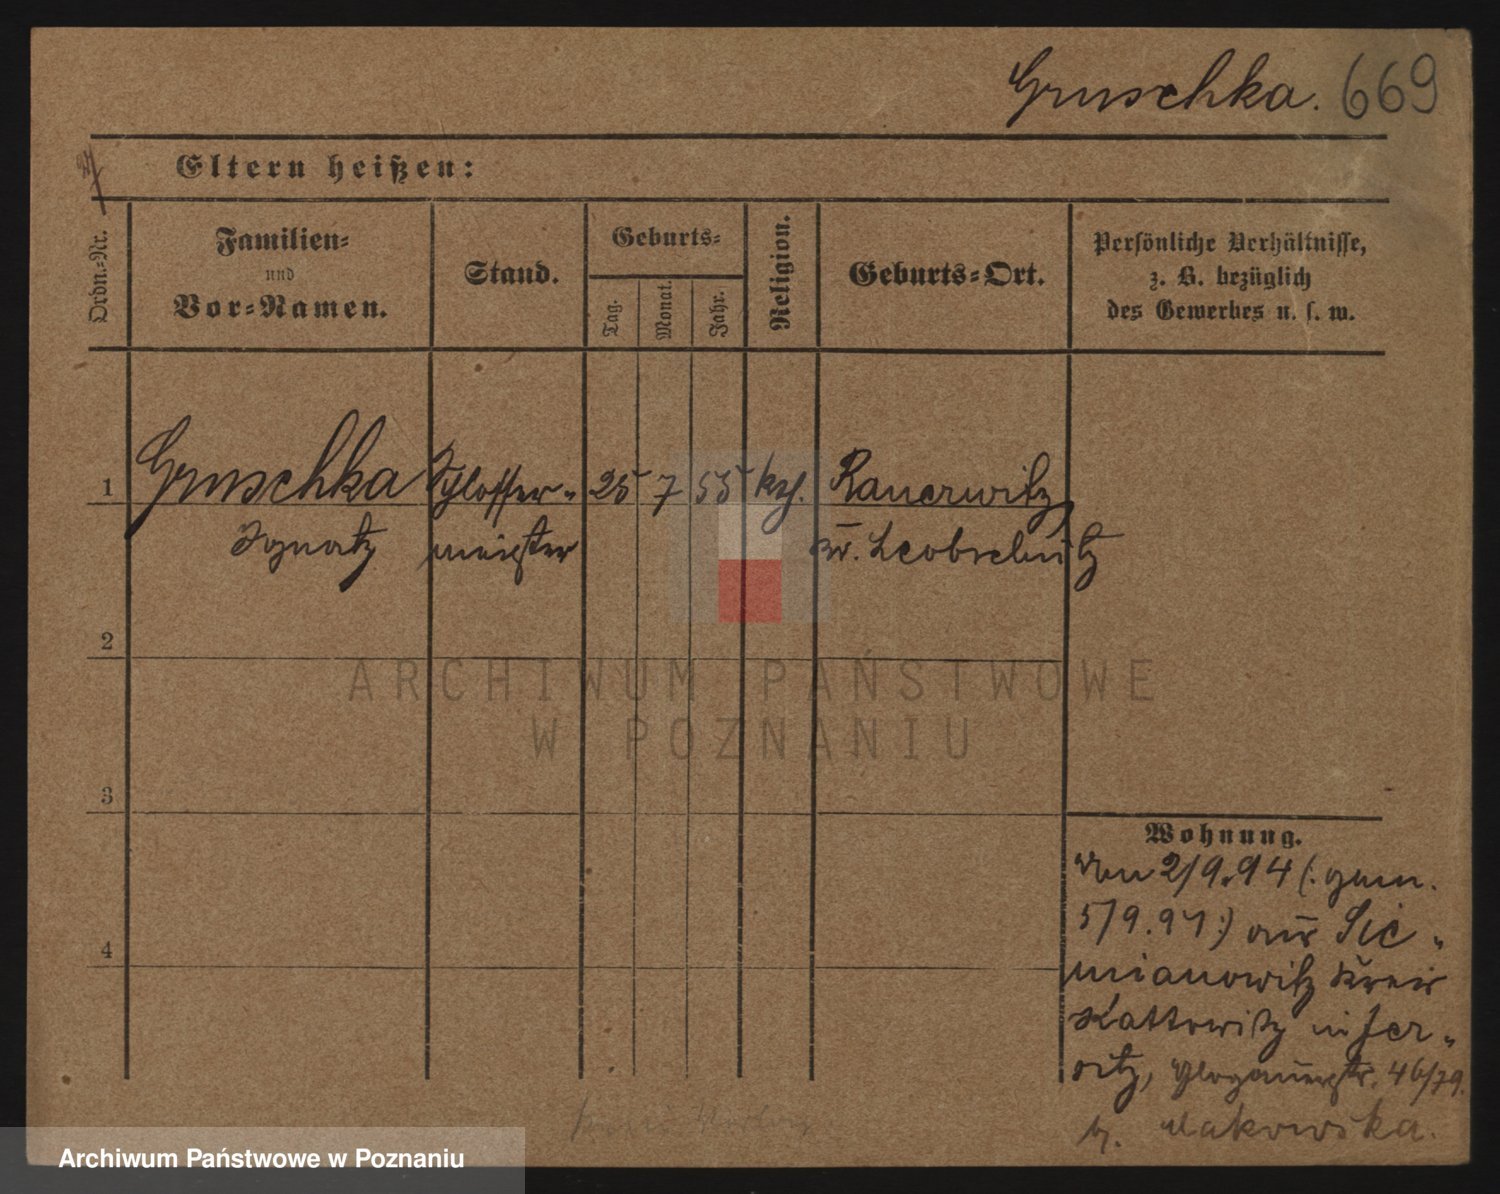 Gruschka. 669
Eltern heißen:
Ordn.-Nr.
Familien-
und
Vor-Namen.
Stand.
Geburts-
Tag.
Monat.
Jahr.
Religion.
Geburts-Ort.
Persönliche Verhältnisse,
z. B. bezüglich
des Gewerbes u. s. w.
1 Gruschka Schlosser- 25 7 55 kth. Rauerwitz
Ignatz meister Kr. Leobschütz
2
ARCHIWUM PAŃSTWOWE
W POZNANIU
3
Wohnung.
Von 2/9.94 (: gem.
5/9.94:) aus Sie-
4
mianowitz Kreis
Kattowitz in Jer-
sitz, Glogauerstr. 46/79.
b. Makowska.
Archiwum Państwowe w Poznaniu